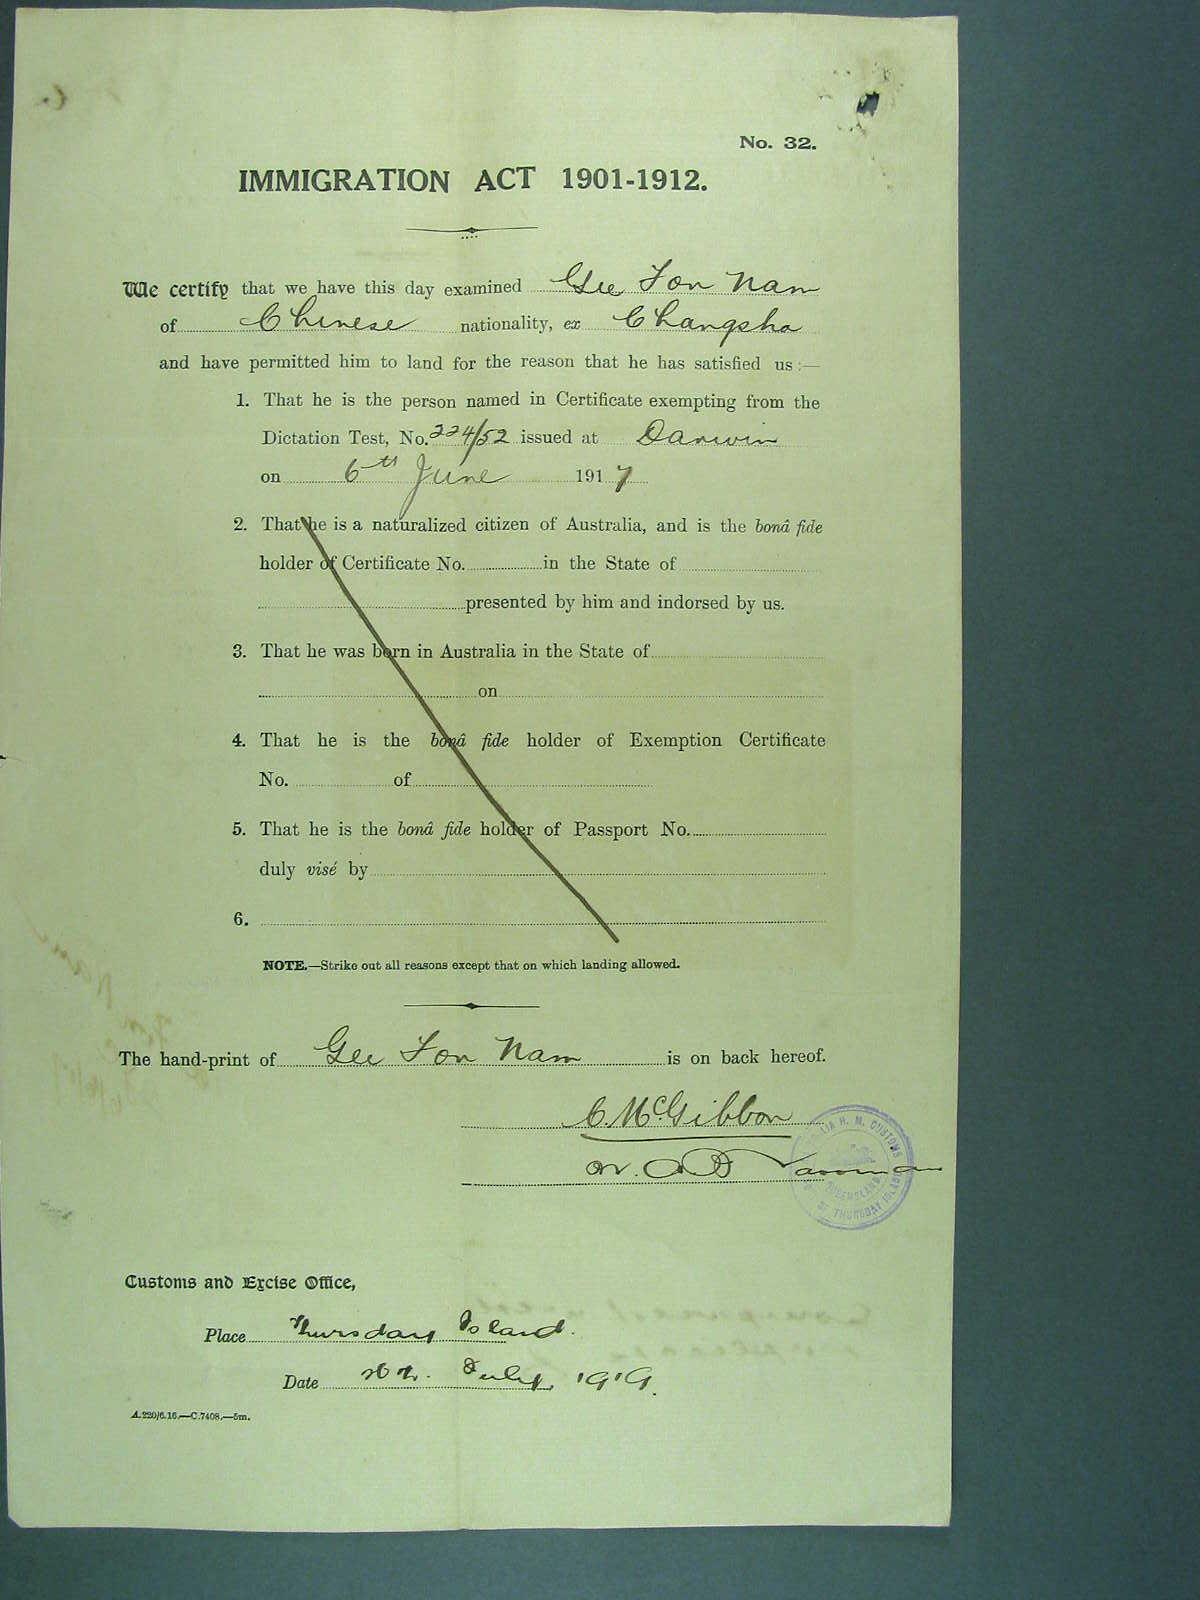 No. 32.
IMMIGRATION ACT 1901-1912.
We certify that we have this day examined Gee Fon Nam
of Chinese nationality, ex Changsha
and have permitted him to land for the reason that he has satisfied us :—
1. That he is the person named in Certificate exempting from the
Dictation Test, No. 224/52 issued at Darwin
on 6th June 1917
2. That he is a naturalized citizen of Australia, and is the bonâ fide
holder of Certificate No. in the State of
presented by him and indorsed by us.
3. That he was born in Australia in the State of
on
4. That he is the bonâ fide holder of Exemption Certificate
No. of
5. That he is the bonâ fide holder of Passport No.
duly visé by
6.
NOTE.—Strike out all reasons except that on which landing allowed.
The hand-print of Gee Fon Nam is on back hereof.
C. McGibbon
H. M. CUSTOMS
QUEENSLAND
THURSDAY ISLAND
Customs and Excise Office,
Place Thursday Island.
Date July, 1919.
A.220/6.16.—C.7408.—5m.